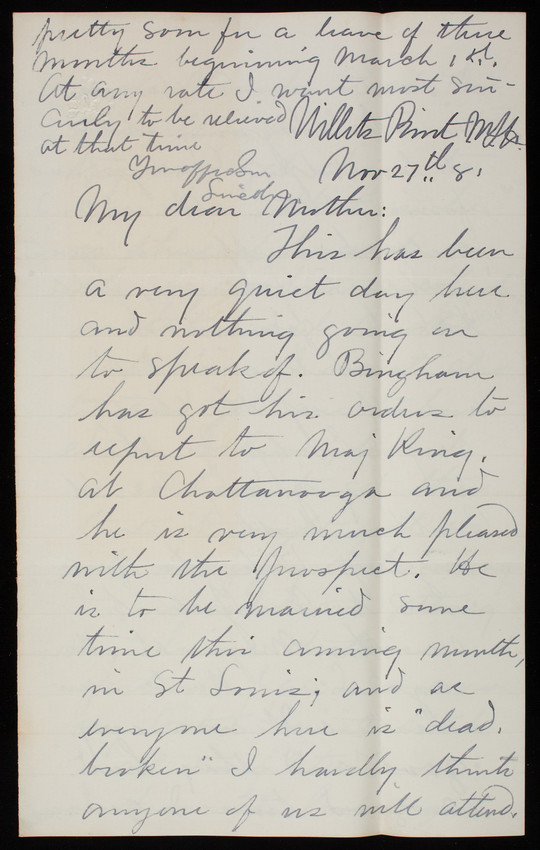 pretty soon for a leave of three
months beginning March 1st.
At any rate I want most sin-
cerely to be relieved
at that time
Your aff Son
Willets Point N.Y.
Nov 27th 81
My dear Mother:
This has been
a very quiet day here
and nothing going on
to speak of. Bingham
has got his orders to
report to Maj King.
at Chattanooga and
he is very much pleased
with the prospect. He
is to be married some
time this coming month,
in St Louis; and as
everyone here is "dead.
broken" I hardly think
anyone of us will attend.